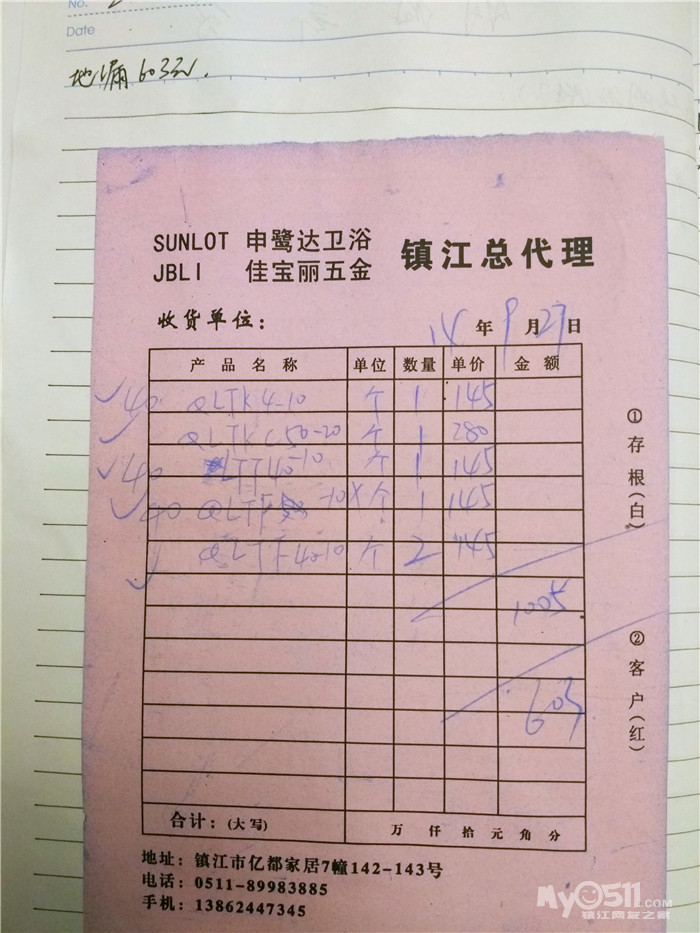 No.
Date
地漏603元.
SUNLOT 申鹭达卫浴
JBLI 佳宝丽五金
镇江总代理
收货单位:
14年9月27日
产品名称 单位 数量 单价 金额
40 QLTK4-10 个 1 145
QLTKL50-20 个 1 280
40 LTT40-10 个 1 145
40 QLTF -10X个 1 145
QLTF40-10 个 2 145
1005
603
合计:(大写) 万仟拾元角分
①存根(白)
②客户(红)
地址: 镇江市亿都家居7幢142-143号
电话: 0511-89983885
手机: 13862447345
My0511.com
镇江网友之家